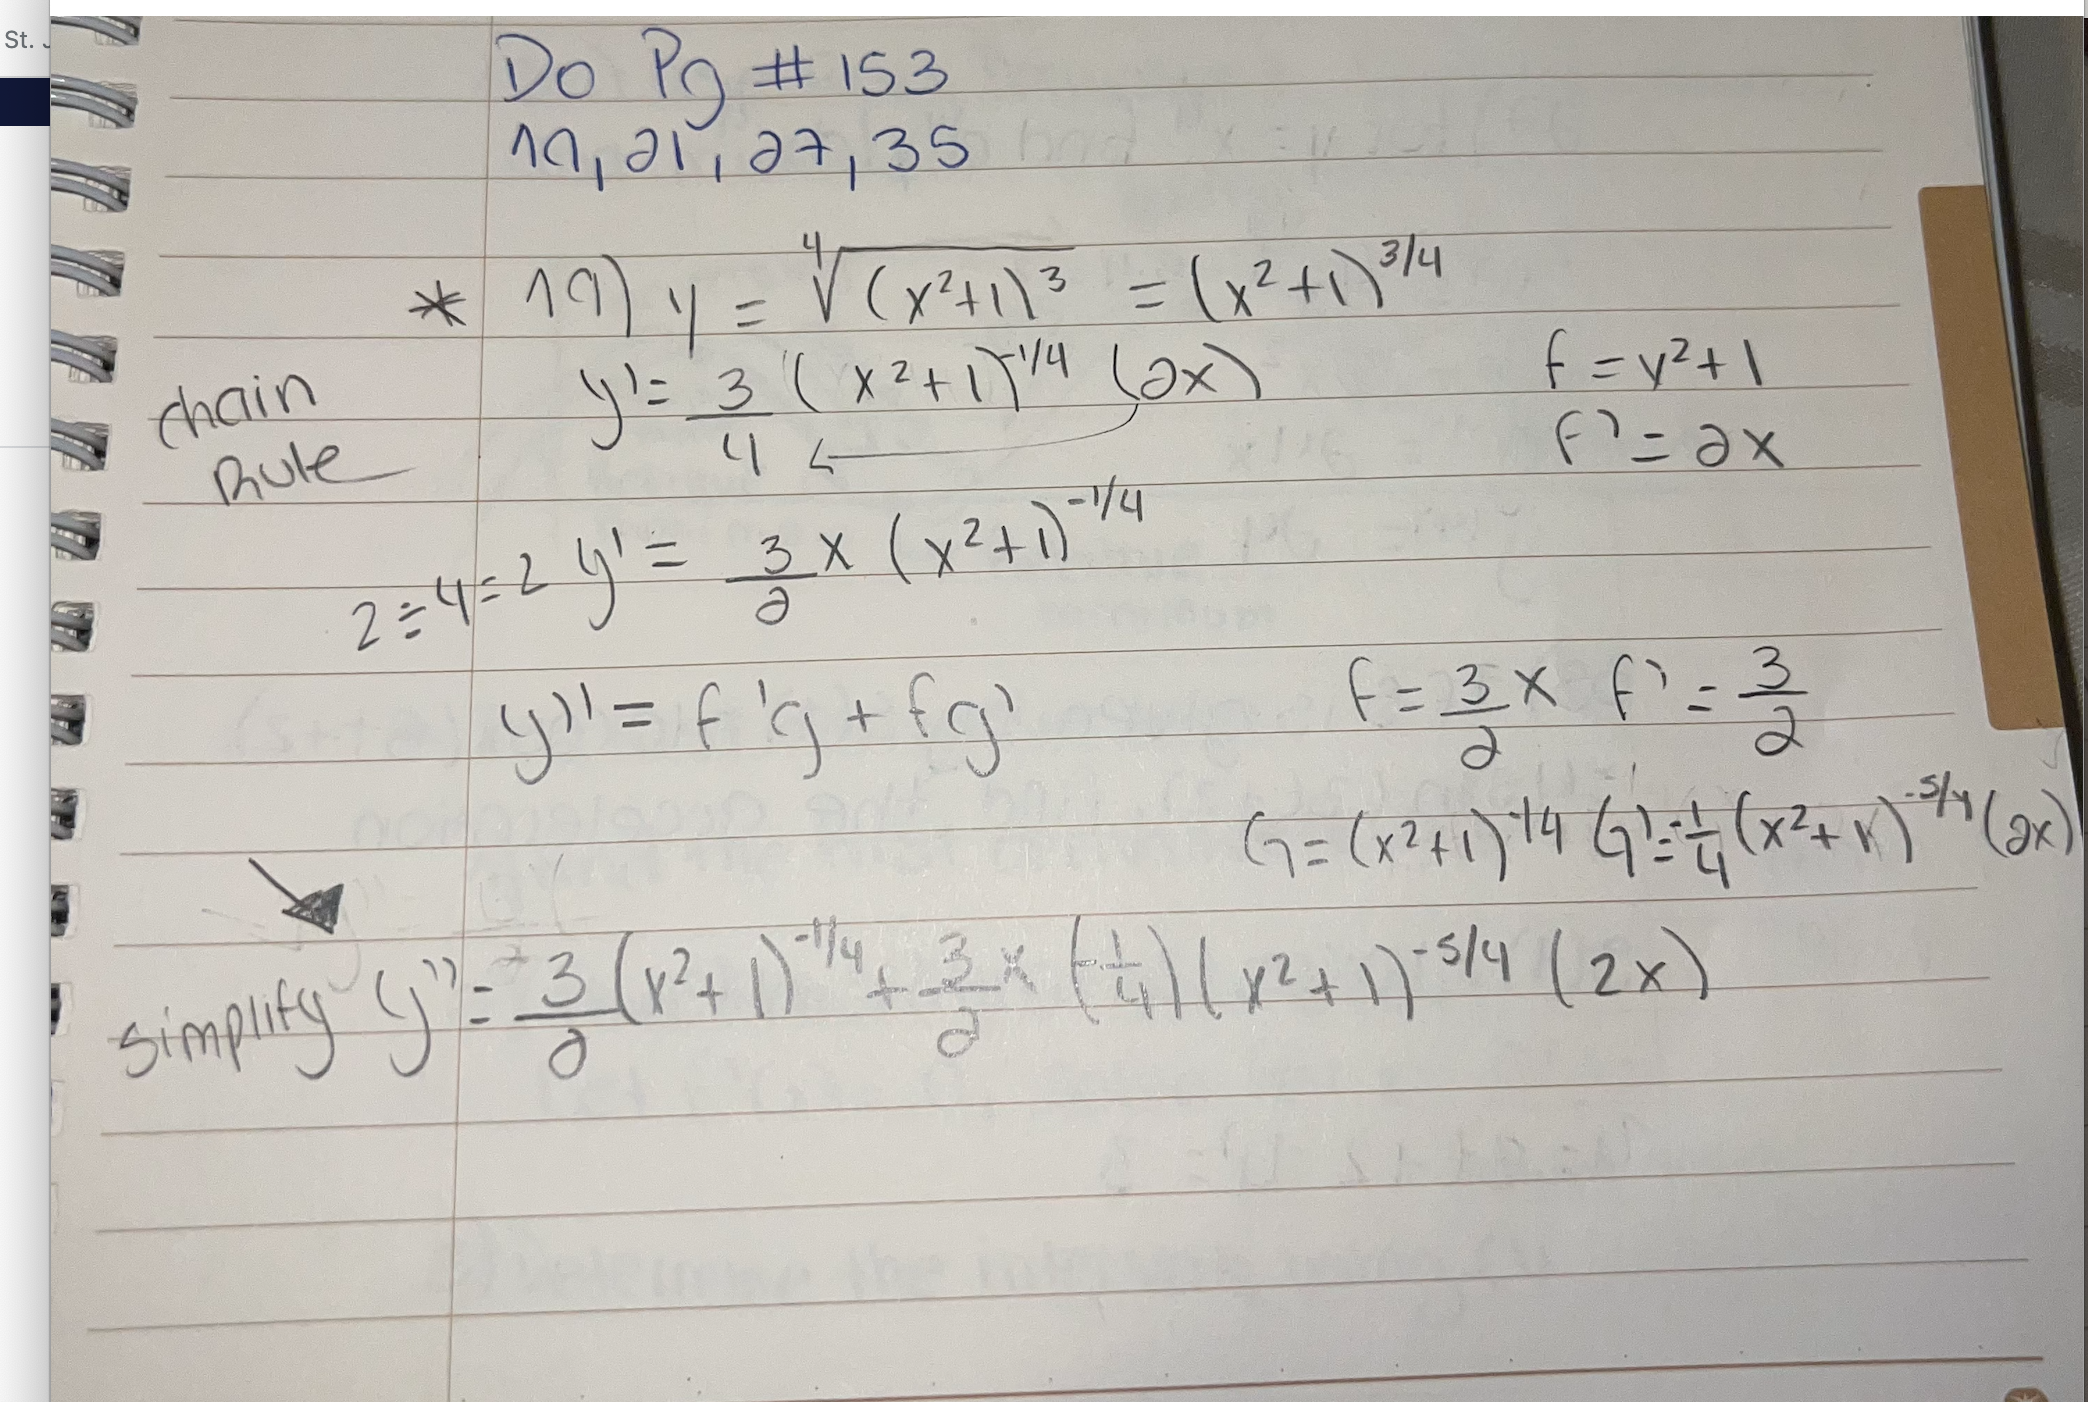 St. J
Do Pg # 153
19, 21, 27, 35
* 19) y = ∜(x²+1)³ = (x²+1)^3/4
chain Rule
y' = 3/4 (x²+1)^-1/4 (2x)
f = x²+1
f' = 2x
2÷4=2 y' = 3/2 x (x²+1)^-1/4
y'' = f'g + fg'
f = 3/2 x f' = 3/2
G = (x²+1)^-1/4 G' = -1/4 (x²+1)^-5/4 (2x)
simplify y'' = 3/2 (x²+1)^-1/4 + 3/2 x (-1/4) (x²+1)^-5/4 (2x)